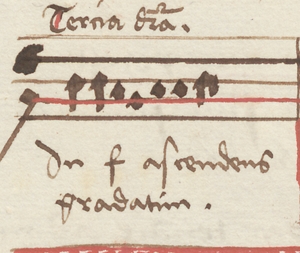 Tercia dr̄a.
In f ascendens
gradatim.